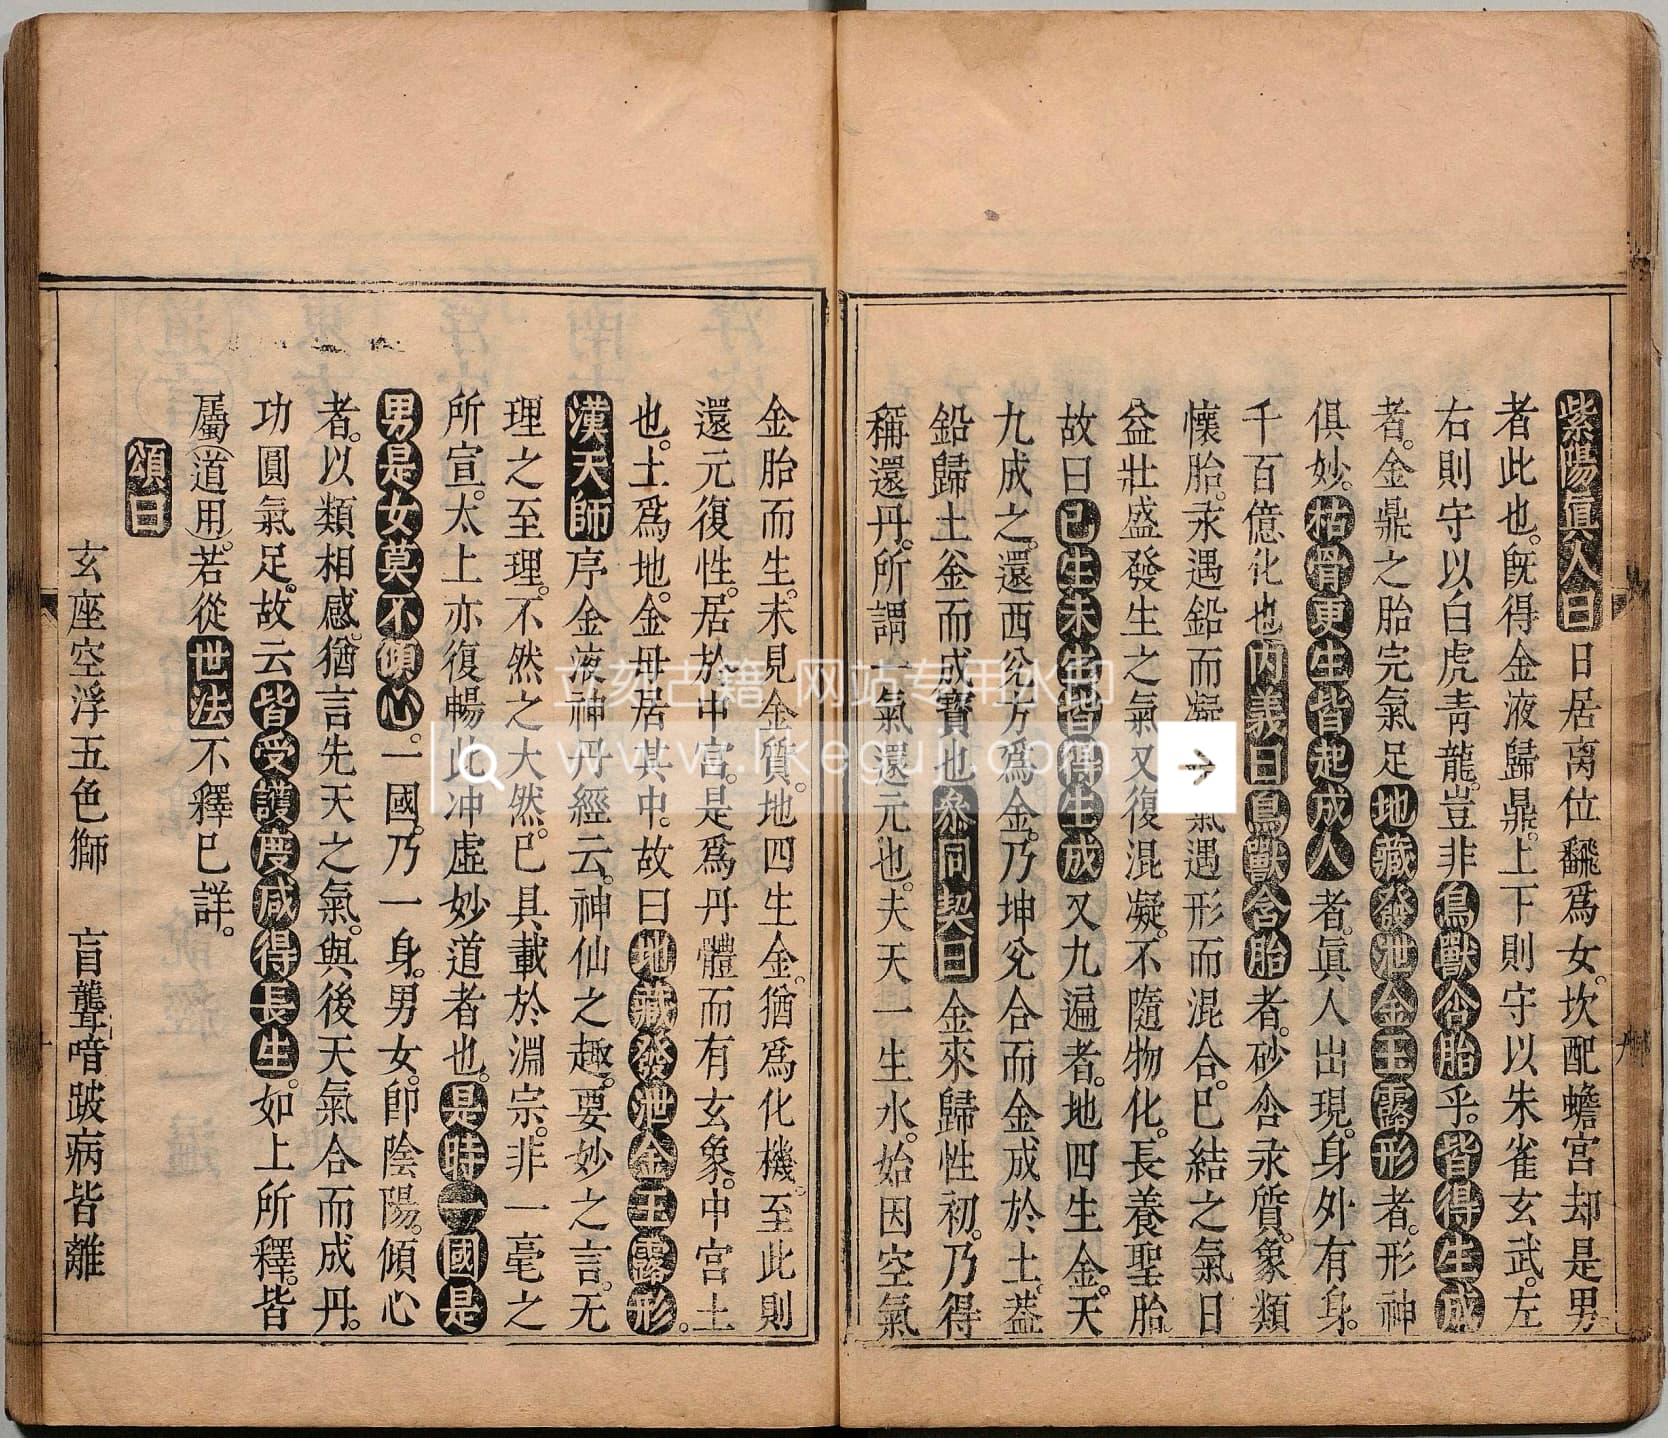 紫陽眞人曰日居离位飜爲女。坎配蟾宮却是男
者此也。旣得金液歸鼎。上下則守以朱雀玄武。左
右則守以白虎青龍。豈非鳥獸含胎乎。皆得生成
者。金鼎之胎完氣足地藏發泄金玉露形者。形神
俱妙。枯骨更生皆起成人者。眞人出現。身外有身。
千百億化也內義曰鳥獸含胎者。砂含汞質。象類
懷胎。汞遇鉛而凝 氣遇形而混合。巳結之氣日
益壯盛發生之氣又復混凝。不隨物化。長養聖胎。
故曰已生未生皆得生成又九遍者。地四生金。天
九成之。還西兌方爲金。乃坤兌合而金成於土。葢
鉛歸土釜而成寶也叅同契曰金來歸性初。乃得
稱還丹。所謂一氣還元也。夫天一生水。始因空氣
金胎而生。未見金質。地四生金。猶爲化機。至此則
還元復性。居於中宮。是爲丹體而有玄象。中宮土
也。土爲地。金母居其中。故曰地藏發泄金玉露形。
漢天師序金液神丹經云。神仙之趣。要妙之言。无
理之至理。不然之大然。巳具載於淵宗。非一毫之
所宣。太上亦復暢此冲虛妙道者也。是時一國是
男是女莫不傾心。一國。乃一身。男女。卽陰陽。傾心
者。以類相感。猶言先天之氣。與後天氣合而成丹。
功圓氣足。故云皆受護度咸得長生。如上所釋。皆
屬（道用）。若從世法不釋巳詳。
頌曰
玄座空浮五色獅　盲聾喑跛病皆離
九
立刻古籍 网站专用水印
www.lkeguji.com